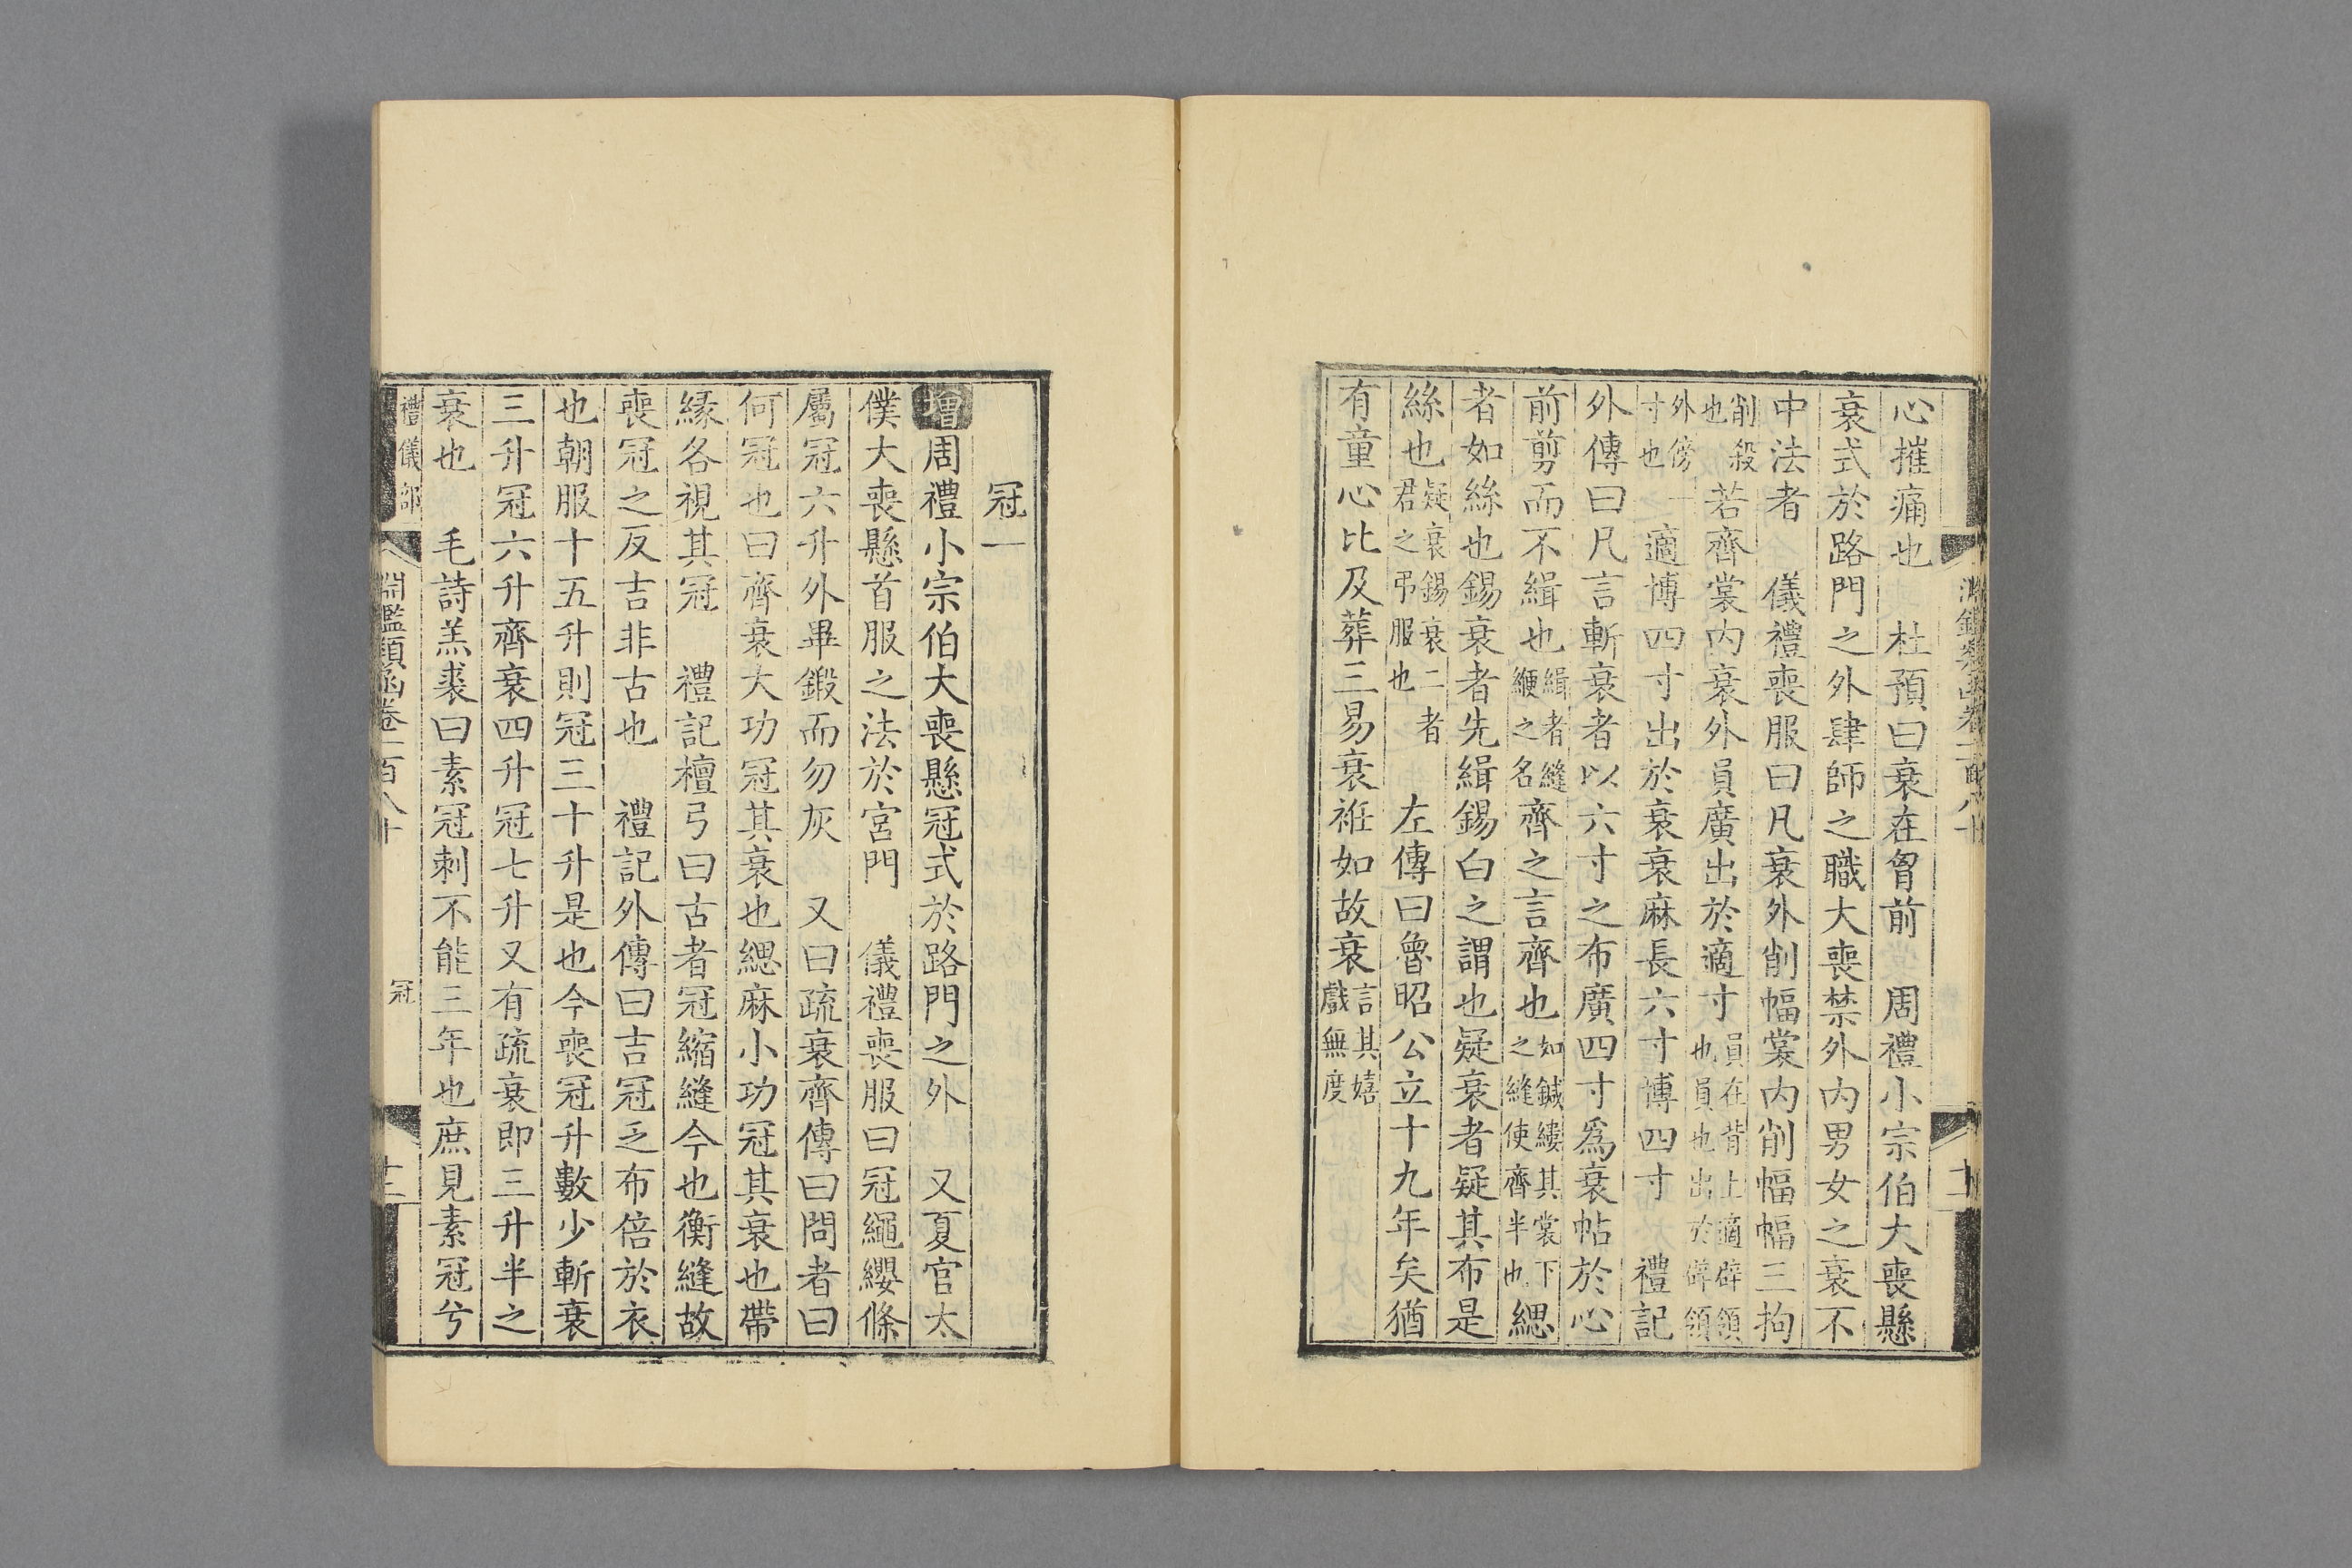 心摧痛也　杜預曰衰在胷前　周禮小宗伯大喪懸
衰式於路門之外肆師之職大喪禁外內男女之衰不
中法者　儀禮喪服曰凡衰外削幅裳內削幅幅三拘
削殺也若齊裳內衰外員廣出於適寸員在背上適辟領也員也出於辟領
外傍一寸也適博四寸出於衰衰麻長六寸博四寸　禮記
外傳曰凡言斬衰者以六寸之布廣四寸爲衰帖於心
前剪而不緝也緝者縫緶之名齊之言齊也如鍼縷其裳下之縫使齊半也緦
者如絲也錫衰者先緝錫白之謂也疑衰者疑其布是
絲也疑衰錫衰二者君之弔服也　左傳曰魯昭公立十九年矣猶
有童心比及葬三易衰衽如故衰言其嬉戲無度
冠一
增周禮小宗伯大喪懸冠式於路門之外　又夏官太
僕大喪懸首服之法於宮門　儀禮喪服曰冠繩纓條
屬冠六升外畢鍛而勿灰　又曰疏衰齊傳曰問者曰
何冠也曰齊衰大功冠其衰也緦麻小功冠其衰也帶
緣各視其冠　禮記檀弓曰古者冠縮縫今也衡縫故
喪冠之反吉非古也　禮記外傳曰吉冠之布倍於衣
也朝服十五升則冠三十升是也今喪冠升數少斬衰
三升冠六升齊衰四升冠七升又有疏衰即三升半之
衰也　毛詩羔裘曰素冠刺不能三年也庶見素冠兮
禮儀部
淵鑑類函卷一百八十
冠
十三